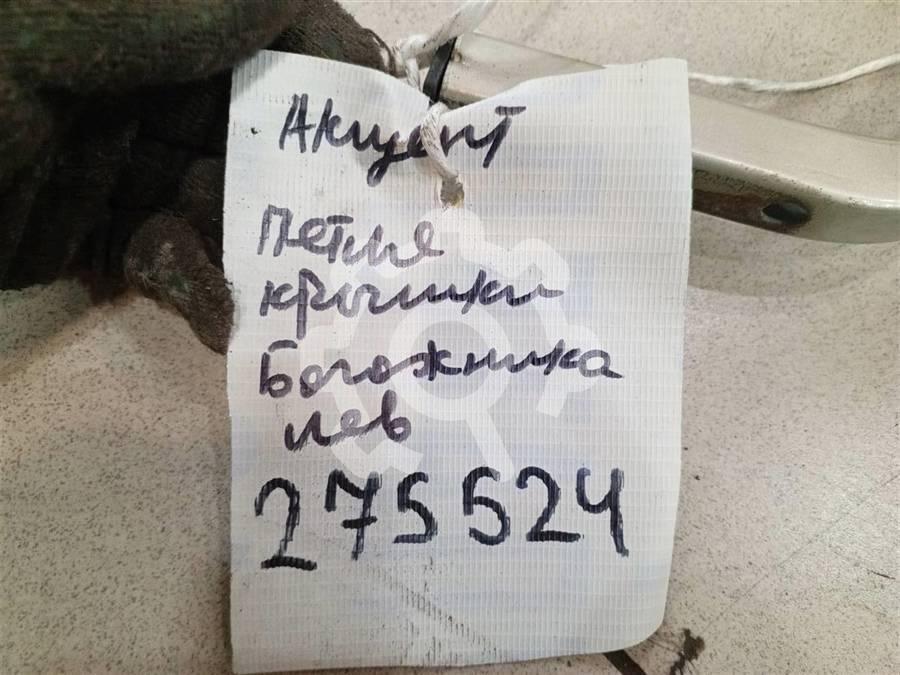 Акцент
Петля
крышки
Богожника
лев
275524